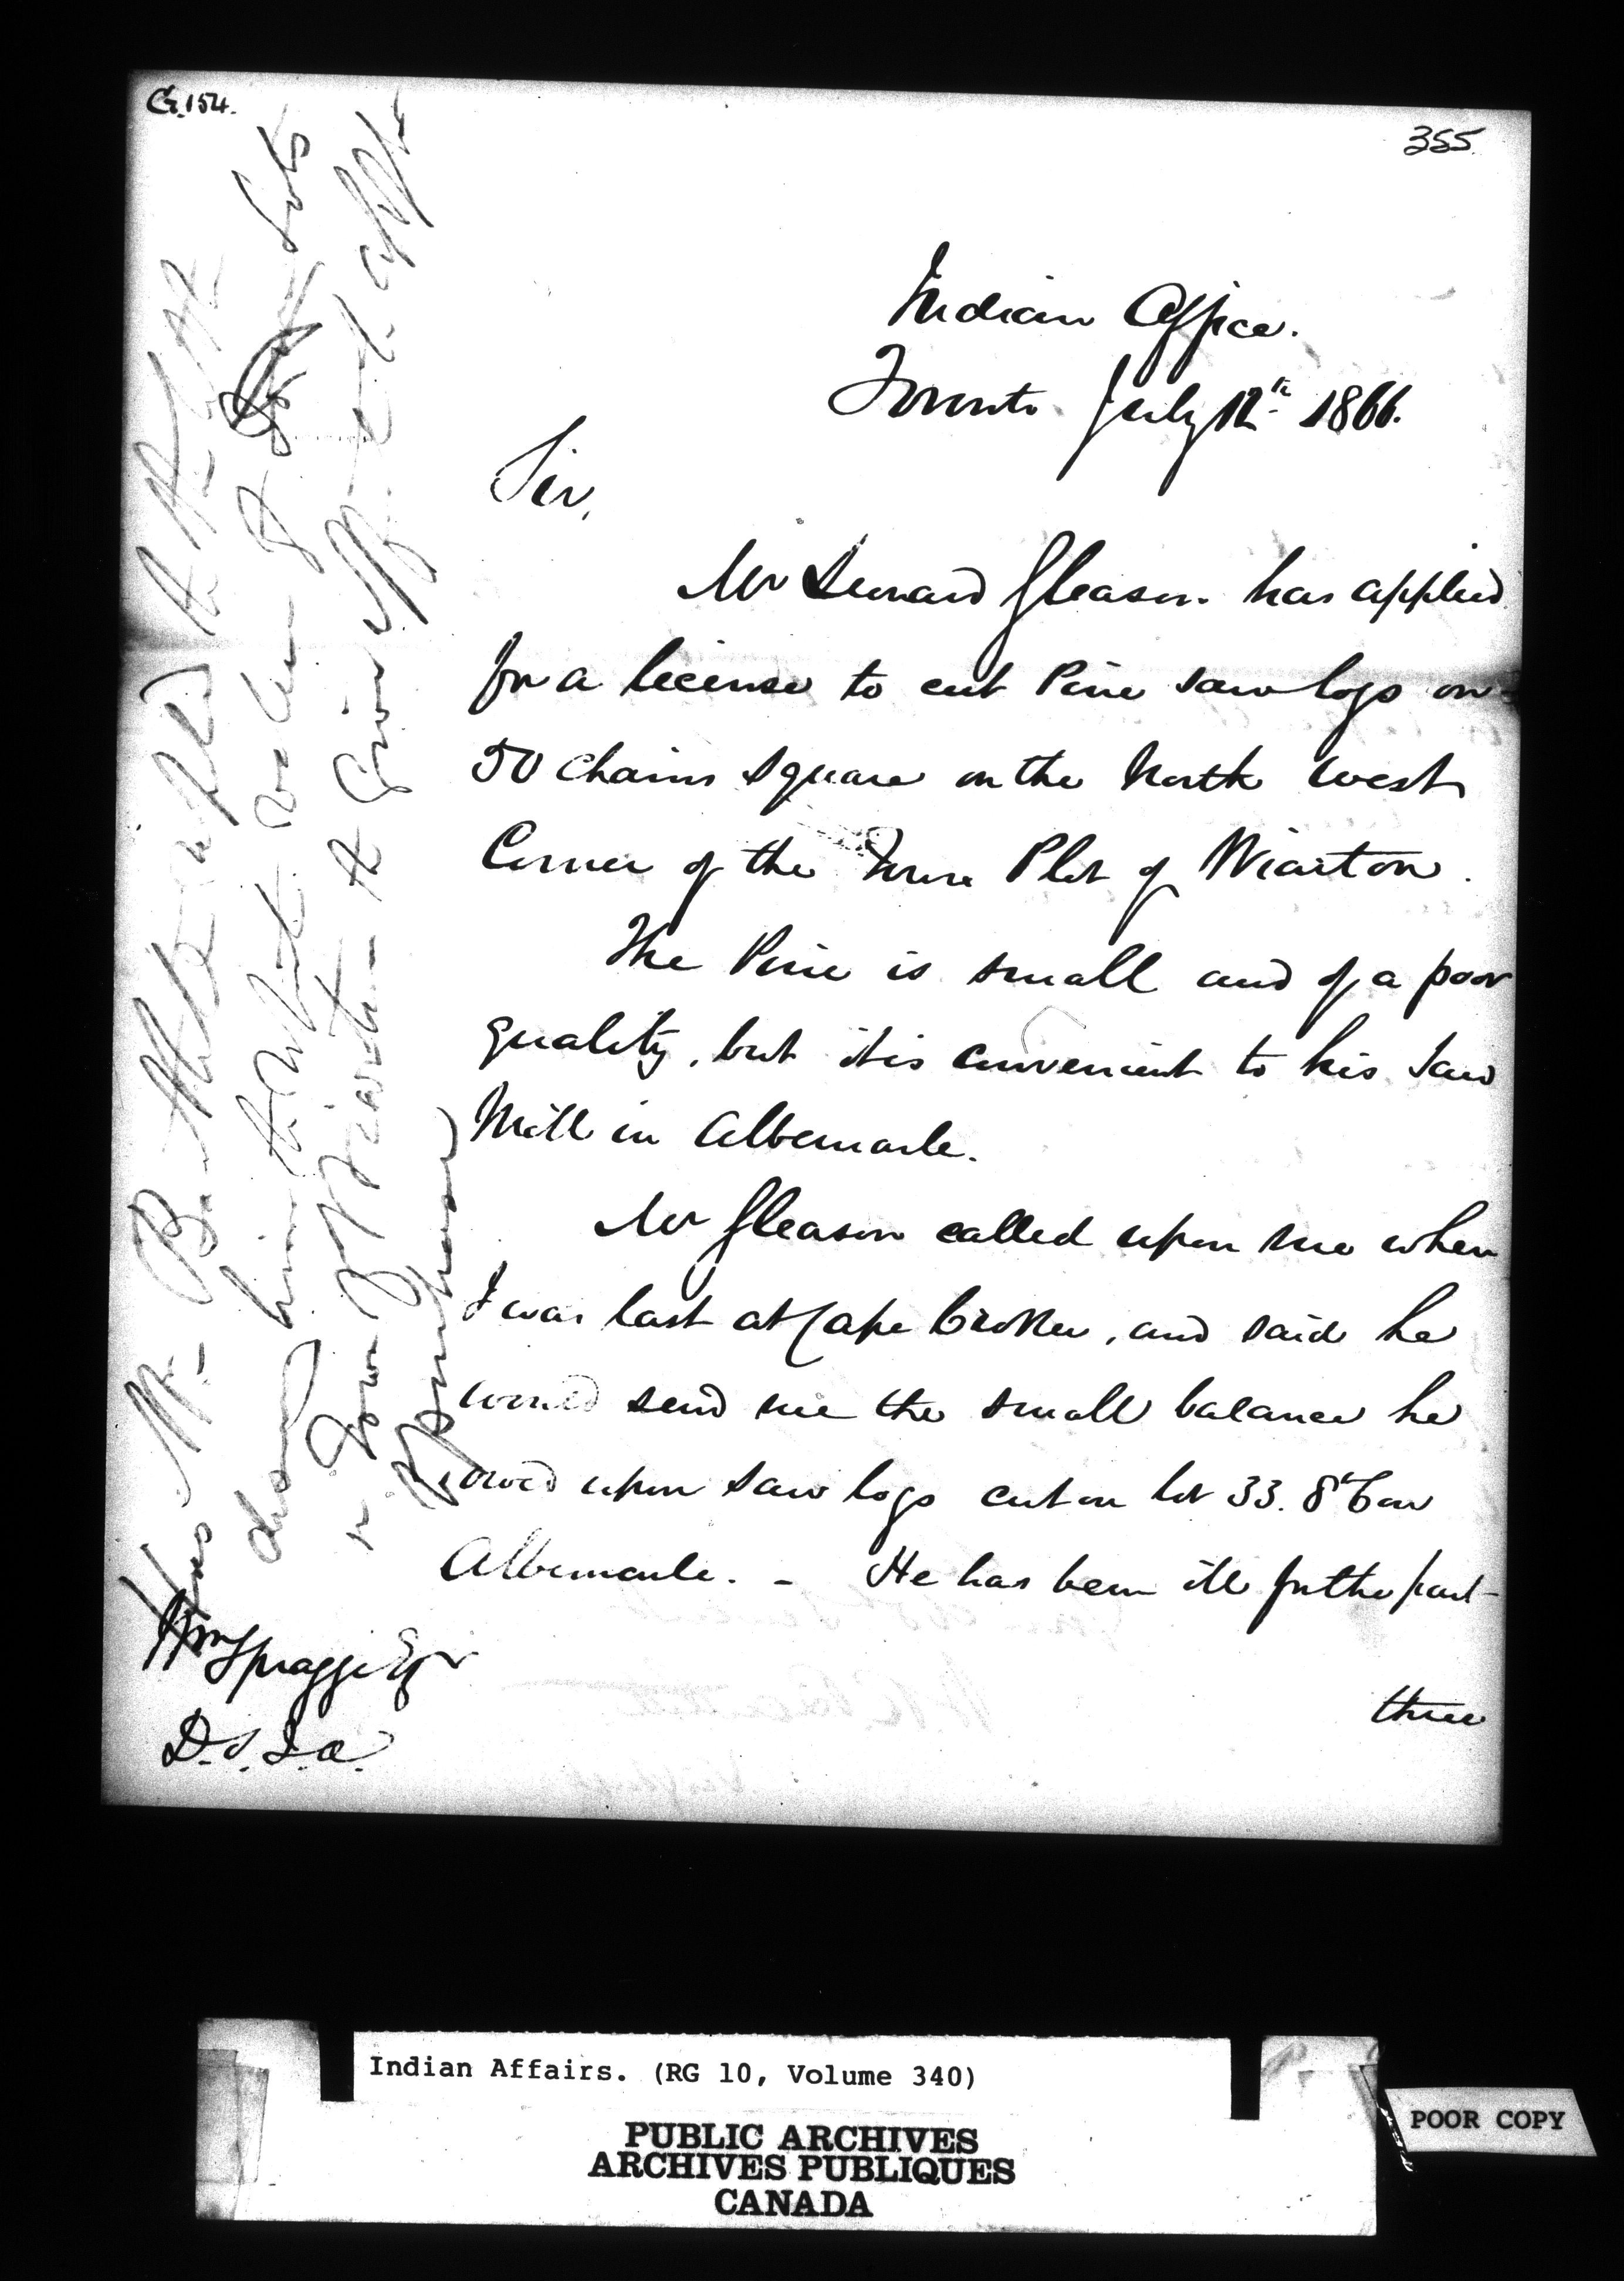 G.154.
355
Indian Office.
Toronto July 12th 1866.
Sir,
Mr Leonard Gleason has applied
for a license to cut Pine saw logs on
50 chains square on the North West
Corner of the Town Plot of Wiarton.
The Pine is small and of a poor
quality, but it is convenient to his Saw
Mill in Albemarle.
Mr Gleason called upon me when
I was last at Cape Croker, and said he
would send me the small balance he
owed upon saw logs cut on lot 33. 8th Con
Albemarle. - He has been ill for the past
three
Wm Spragge Esqr
D.S.I.A.
Has Mr Bartlett applied to the
down him to what value of Lots
in Town of Wiarton to Given
Indian Affairs. (RG 10, Volume 340)
PUBLIC ARCHIVES
ARCHIVES PUBLIQUES
CANADA
POOR COPY